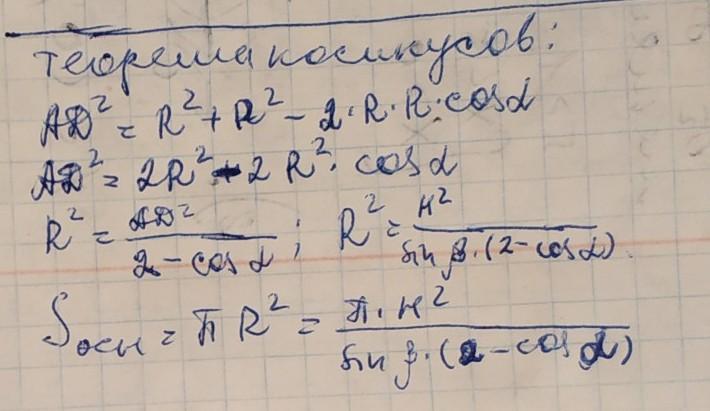 теорема косинусов:
AD² = R² + R² - 2·R·R·cosα
AD² = 2R² - 2R²·cosα
R² = AD² / (2 - cosα); R² = H² / (sin β·(2 - cosα))
Sосн = πR² = π·H² / (sin β·(2 - cosα))